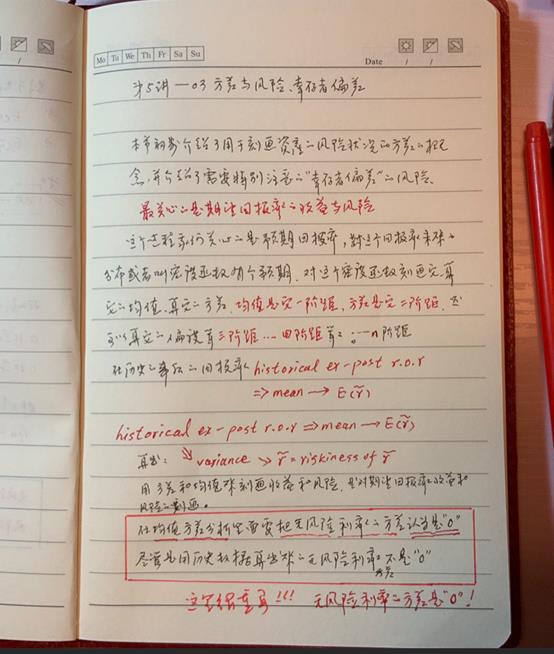 Mo Tu We Th Fr Sa Su
Date / /
第5讲—03 方差与风险、幸存者偏差
本节初步介绍了用于刻画资产的风险状况的方差的概
念,并介绍了需要特别注意的"幸存者偏差"的风险。
最关心的是期望回报率的收益与风险
这个过程我们关心的是预期回报率,对这个回报率未来的
分布或者叫密度函数有个预期,对这个密度函数刻画完,算
它的均值,算它的方差,均值是它一阶距,方差是它二阶距,还
可以算它的偏度等三阶距…四阶距等:…n阶距
在历史的事后的回报率 historical ex-post r.o.r
=> mean → E(r̃)
historical ex-post r.o.r => mean → E(r̃)
算出: ↘ variance → r̃ = riskiness of r̃
用方差和均值来刻画收益和风险,是对期望回报率的收益和
风险的刻画。
在均值方差分析里需要把无风险利率的方差认为是"0"
尽管是用历史数据算出来的无风险利率方差不是"0"
这里很重要!!! 无风险利率的方差是"0"!